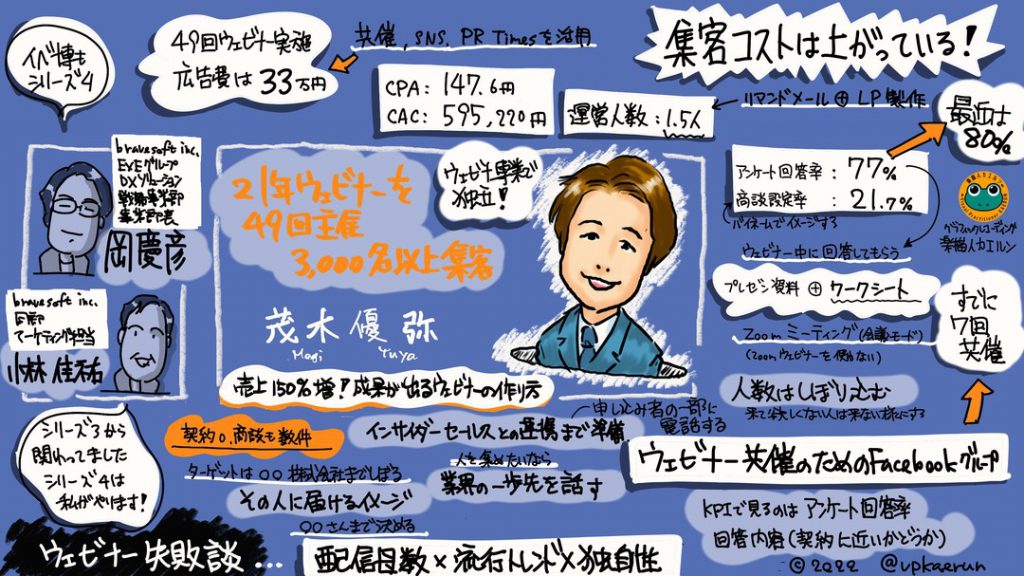 イベ博も
シリーズ4
49回ウェビナー実施
広告費は33万円
共催, SNS, PR Timesを活用
集客コストは上がっている!
CPA: 147.6円
CAC: 595,220円
運営人数:1.5人
リマンドメール⊕LP製作
最近は
80%
アンケート回答率:77%
商談設定率:21.7%
バイネームでイメージする
ウェビナー中に回答してもらう
グラフィックレコーディング
bravesoft inc.
EVEグループ
DXソリューション
岡慶彦
21年ウェビナーを
49回主催
3,000名以上集客
ウェビナー専業で
独立!
茂木優弥
Mogi Yuya
売上150%増!成果が出るウェビナーの作り方
bravesoft inc.
マーケティング担当
小林佳祐
プレゼン資料⊕ワークシート
Zoomミーティング(会議モード)
(Zoomウェビナーを使わない)
すでに
7回
共催
人数はしぼりこむ
シリーズ3から
関わってました
シリーズ4は
私がやります!
契約0.商談も数件
ターゲットは○○株式会社までしぼる
その人に届けるイメージ
○○さんまで決める
インサイダーセールスとの連携まで準備
申し込み者の一部に
電話する
人を集めたいなら
業界の一歩先を話す
ウェビナー共催のためのFacebookグループ
KPIで見るのはアンケート回答率
回答内容(契約に近いかどうか)
ウェビナー失敗談...
配信母数×流行トレンド×独自性
© 2022 @vpkaerun